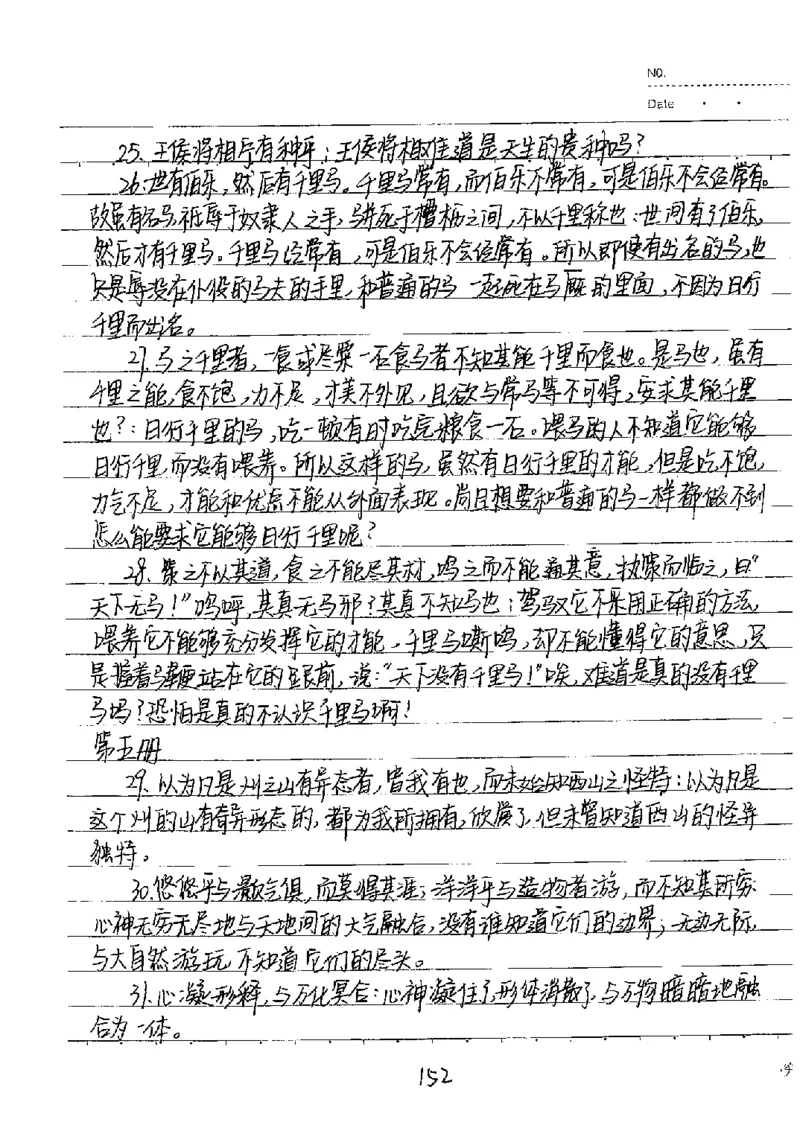 NO.
Date
25. 王侯将相宁有种乎：王侯将相难道是天生的贵种吗？
26. 世有伯乐，然后有千里马。千里马常有，而伯乐不常有，可是伯乐不会经常有。
故虽有名马，祗辱于奴隶人之手，骈死于槽枥之间，不以千里称也：世间有了伯乐，
然后才有千里马。千里马经常有，可是伯乐不会经常有。所以即使有出名的马，也
只是辱没在仆役的马夫的手里，和普通的马一起死在马厩的里面，不因为日行
千里而出名。
27. 马之千里者，一食或尽粟一石食马者不知其能千里而食也。是马也，虽有
千里之能，食不饱，力不足，才美不外见，且欲与常马等不可得，安求其能千里
也？：日行千里的马，吃一顿有时吃完粮食一石。喂马的人不知道它能够
日行千里，而没有喂养。所以这样的马，虽然有日行千里的才能，但是吃不饱，
力气不足，才能和优点不能从外面表现。尚且想要和普通的马一样都做不到
怎么能要求它能够日行千里呢？
28. 策之不以其道，食之不能尽其材，鸣之而不能通其意，执策而临之，曰“
天下无马！”呜呼，其真无马邪？其真不知马也：驾驭它不采用正确的方法，
喂养它不能够充分发挥它的才能，千里马嘶鸣，却不能懂得它的意思，只
是握着马鞭站在它的跟前，说：“天下没有千里马！”唉，难道是真的没有千里
马吗？恐怕是真的不认识千里马啊！
第五册
29. 以为凡是州之山有异态者，皆我有也，而未始知西山之怪特：以为凡是
这个州的山有奇异形态的，都为我所拥有，欣赏了，但未曾知道西山的怪异
独特。
30. 悠悠乎与灏气俱，而莫得其涯；洋洋乎与造物者游，而不知其所穷：
心神无穷无尽地与天地间的大气融合，没有谁知道它们的边界；无边无际，
与大自然游玩，不知道它们的尽头。
31. 心凝形释，与万化冥合：心神凝住了，形体消散了，与万物暗暗地融
合为一体。
152